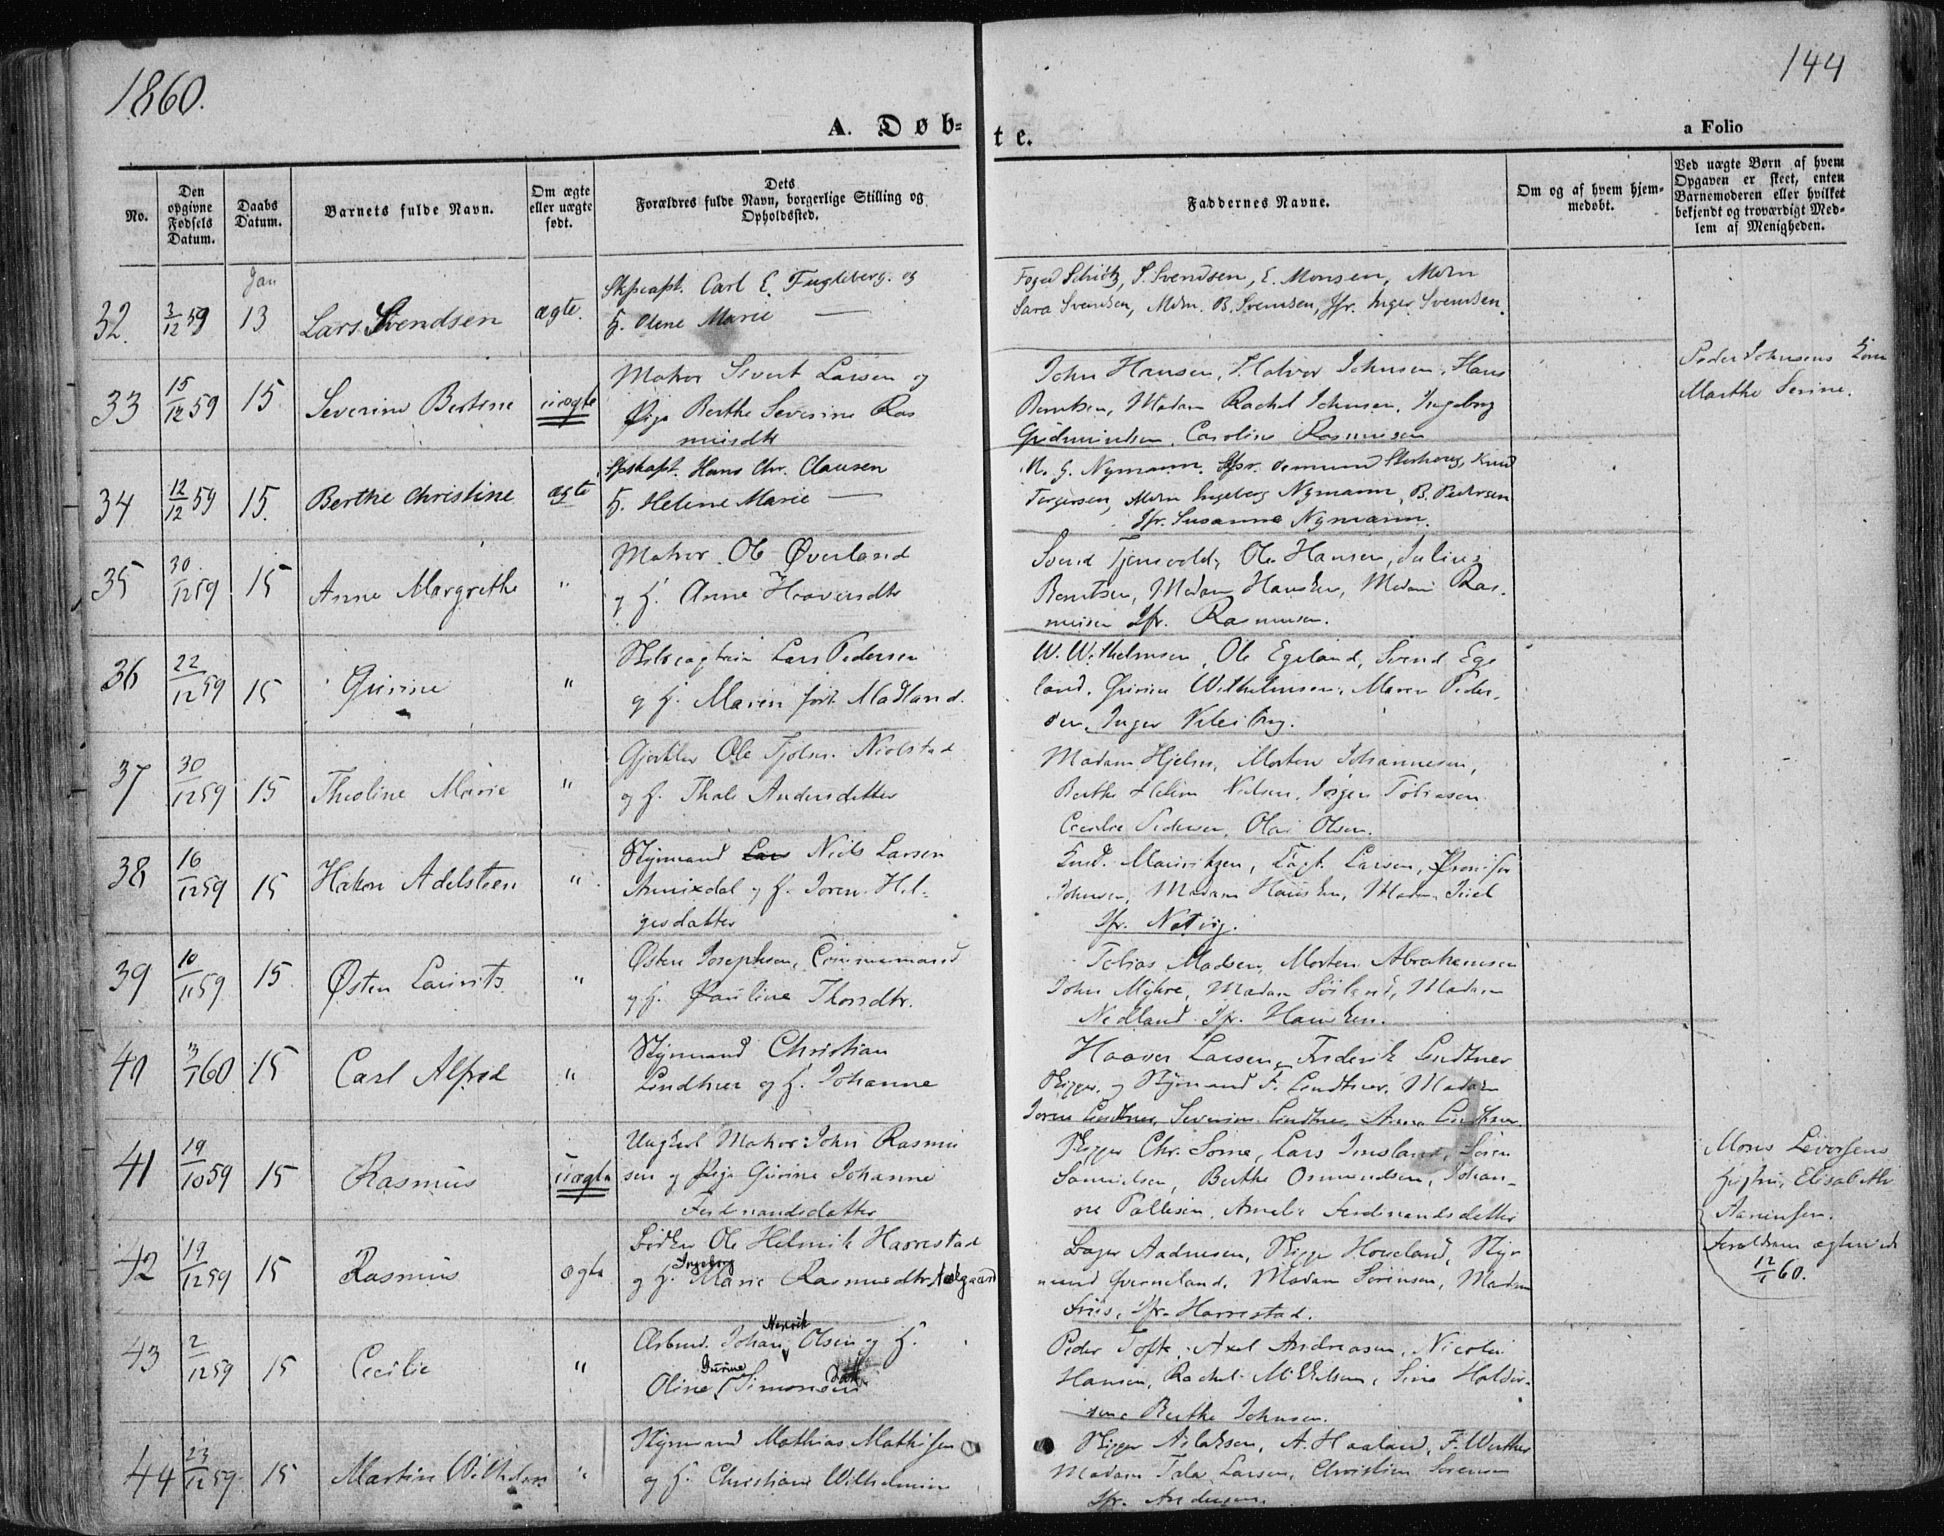 1860.
144
A. Døb-
te.
a Folio
No.
Den opgivne Fødsels Datum.
Daabs Datum.
Barnets fulde Navn.
Om ægte eller uægte født.
Dets Forældres fulde Navn, borgerlige Stilling og Opholdsted.
Faddernes Navne.
Om og af hvem hjemmedøbt.
Ved uægte Børn af hvem Opgaven er skeet, enten Barnemoderen eller hvilket bekjendt og troværdigt Medlem af Menigheden.
Jan
32. 3/12 59 13 Lars Svendsen ægte.
Skpscapt. Carl E. Fugleberg. og
H. Olene Marie —
Foged Schiøtz, S. Svendsen, E. Monsen, Mdm
Sara Svendsen, Mdm. B. Svendsen, Jfr. Inger Svendsen.
33 15/12 59 15. Severine Bertine uægte
Matros Sivert Larsen og
Pige Berthe Severine Ras
musdtr
John Hansen, Halvor Johnsen, Hans
Berntsen, Madam Rachel Johnsen, Ingeborg
Gudmundsen, Caroline Rasmusen
Peder Johnsens Kone
Marthe Serine.
34 12/12 59 15. Berthe Christine ægte
Spskapt. Hans Chr. Clausen
H. Helene Marie —
N. G. Nymann, Knud
Torgersen, Mdm Ingeborg Nymann, B. Pedersen
Jfr. Susanne Nymann.
35 30/12 59 15 Anne Margrethe "
Matros Ole Øverland
og H. Anne Haaversdtr
Svend Tjensvold, Ole Hansen, Julius
Berntsen, Madam Hansen, Madam Ras-
musen Jfr. Rasmusen.
36 22/12 59 15 Gurine "
Skibscaptain Lars Pedersen
og H. Maren født Madland.
W. Wilhelmsen, Ole Egeland, Svend Ege
land, Gurine Wilhelmsen, Maren Peder-
sen, Inger
37 30/12 59 15 Theoline Marie "
Gjørtler Ole Nielstad
og H. Thale Andersdatter
Madam Hjelm, Morten Johannesen,
Berthe Helene Nielsen, Jørgen Tobiasen
Cecilie Pedersen, Olai Olsen.
38 16/12 59 15 Hakon Adelsteen "
Styrmand Lars Niels Larsen
og H. Joren Hel-
gesdatter
Knud Mauritzen, Capt. Larsen,
Johnsen, Madam Hausken, Madam
Jfr. Natvig.
39 10/11 59 15 Østen Laurits "
Østen Josephsen,
og H. Pauline Thorsdtr.
Tobias Madsen, Morten Abrahamsen
John Myhre, Madam Sørland, Madam
Nedland Jfr. Hausken.
40 3/1 60 15 Carl Alfred "
Styrmand Christian
Lindtner og H. Johanne
Haaver Larsen, Frederik Lindtner
Skipper, og Styrmand F. Lindtner, Madam
Joren Lindtner, Severine Lindtner, Anna Lindtner
41 19/10 59 15 Rasmus uægte
Ungkarl Matros John Rasmu
sen og Pige Gurine Johanne
Ferdinandsdatter
Skipper Chr. Sørne, Lars Imsland, Søren
Samuelsen, Berthe Osmundsen, Johan-
ne Pallesen, Amalie Ferdinandsdatter
Mons Levorsens
Hustru, Elisabeth
Forældrene ægteviede
12/1 60.
42 19/12 59 15 Rasmus ægte
Bødker Ole Helmik Harrestad
og H. Ingeborg Marie Rasmusdtr.
Bager Aadnesen, Skipper Houeland, Styr
mand Qverneland, Madam Sørensen, Madam
Friis, Jfr. Harrestad.
43 2/12 59 15 Cecilie "
Arbmd. Johan Henrik Olsen og H.
Oline Gurine Simonsdatt
Peder Tofte, Axel Andreasen, Nicolai
Hansen, Rachel Mikkelsen, Sina Haldor-
sen, Berthe Johnsen.
44 23/12 59 15 Martin Wilhelm "
Styrmand Mathias Mathisen
og H. Christiane Wilhelmine
Skipper Aslaksen, A. Haaland, F. Werther
Madam Tala Larsen, Christian Sørensen
Jfr. Andersen.